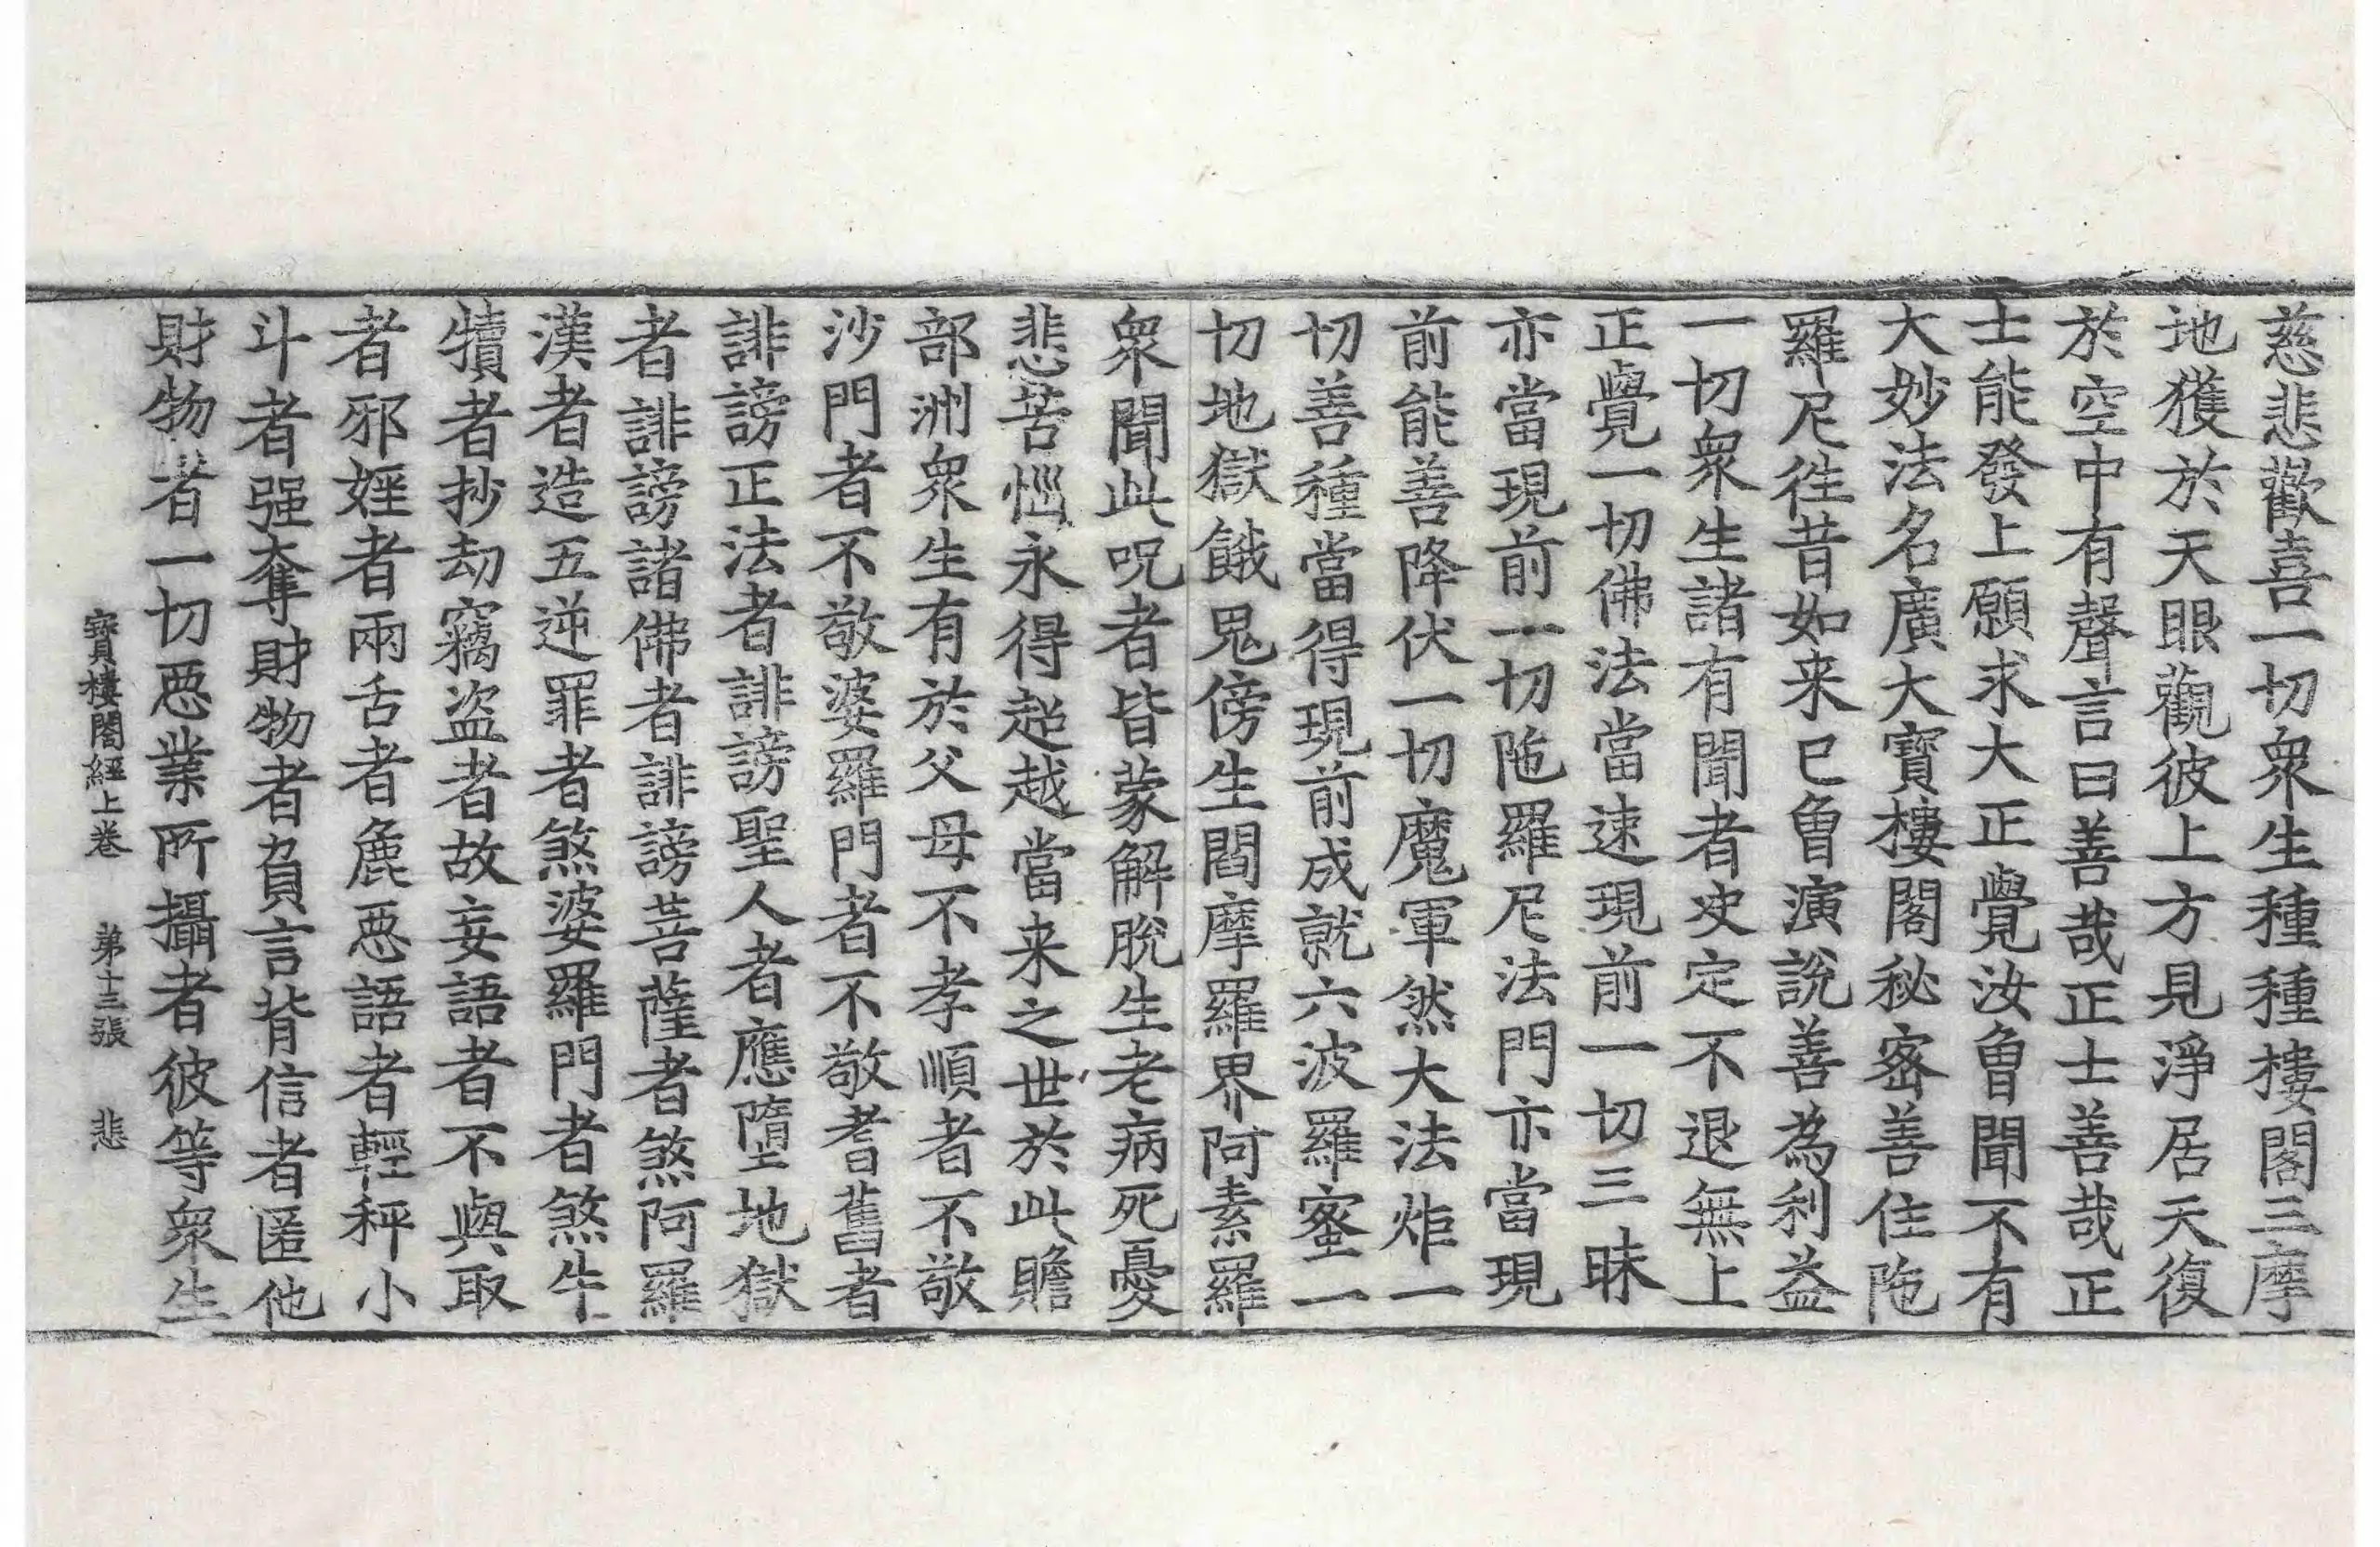 慈悲歡喜一切衆生種種樓閣三摩
地獲於天眼觀彼上方見淨居天復
於空中有聲言曰善哉正士善哉正
士能發上願求大正覺汝曾聞不有
大妙法名廣大寶樓閣秘密善住陁
羅尼徃昔如来已曾演說善為利益
一切衆生諸有聞者决定不退無上
正覺一切佛法當速現前一切三昧
亦當現前一切陁羅尼法門亦當現
前能善降伏一切魔軍然大法炬一
切善種當得現前成就六波羅蜜一
切地獄餓鬼傍生閻摩羅界阿素羅
衆聞此呪者皆蒙解脫生老病死憂
悲苦惱永得超越當来之世於此贍
部洲衆生有於父母不孝順者不敬
沙門者不敬婆羅門者不敬耆舊者
誹謗正法者誹謗聖人者應墮地獄
者誹謗諸佛者誹謗菩薩者煞阿羅
漢者造五逆罪者煞婆羅門者煞牛
犢者抄劫竊盜者故妄語者不與取
者邪婬者兩舌者麁惡語者輕秤小
斗者强奪財物者負言背信者匿他
財物者一切惡業所攝者彼等衆生
寶樓閣經上卷 第十三張 悲